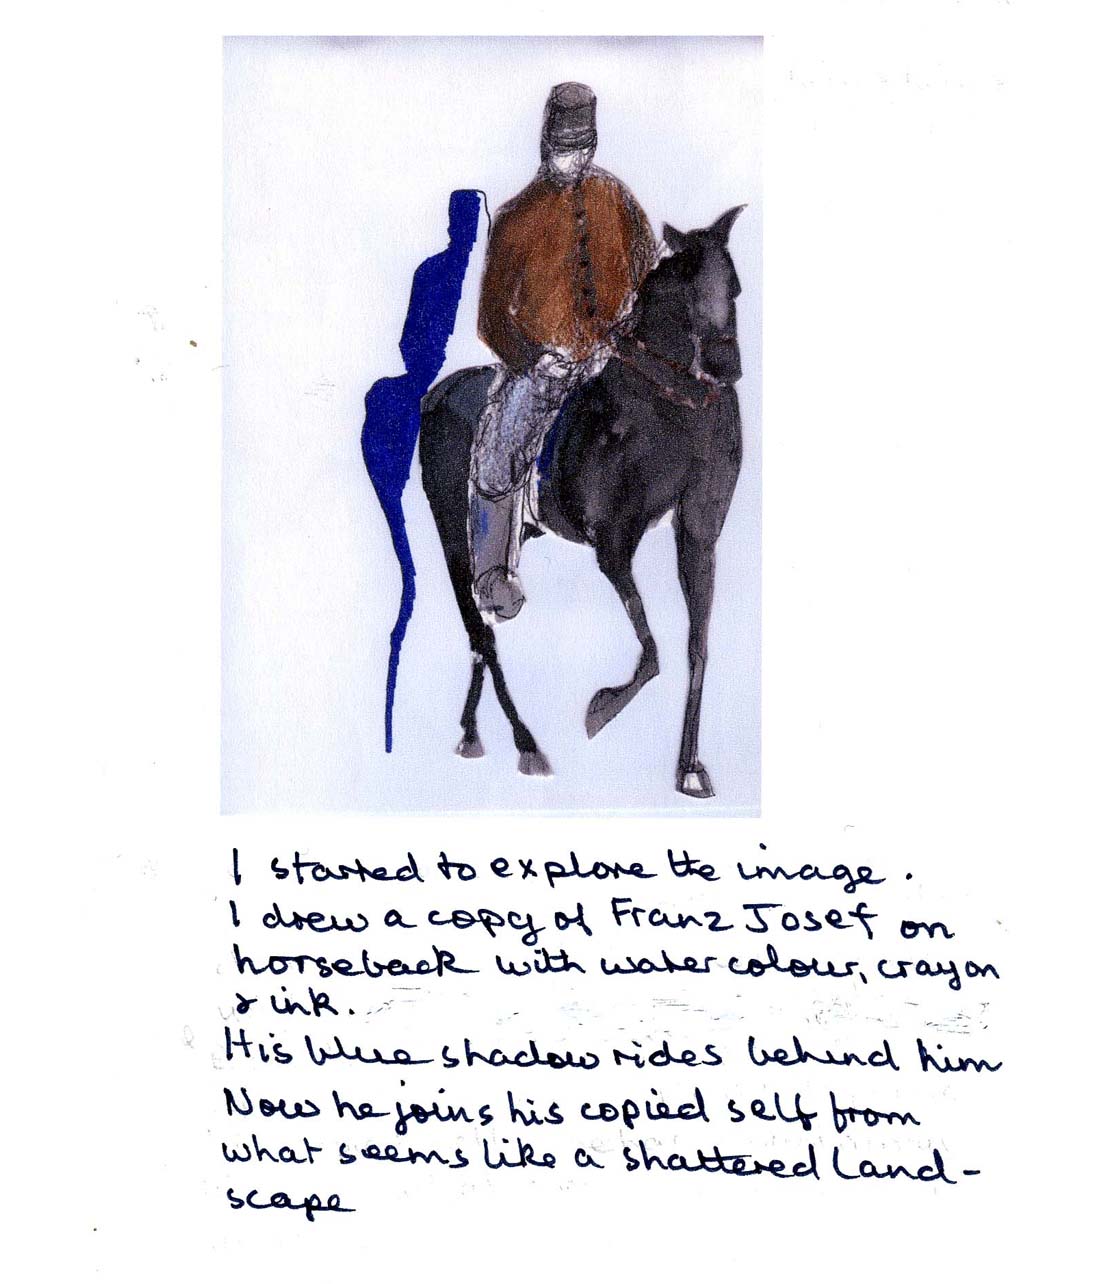 I started to explore the image.
I drew a copy of Franz Josef on
horseback with water colour, crayon
& ink.
His blue shadow rides behind him
Now he joins his copied self from
what seems like a shattered land-
scape